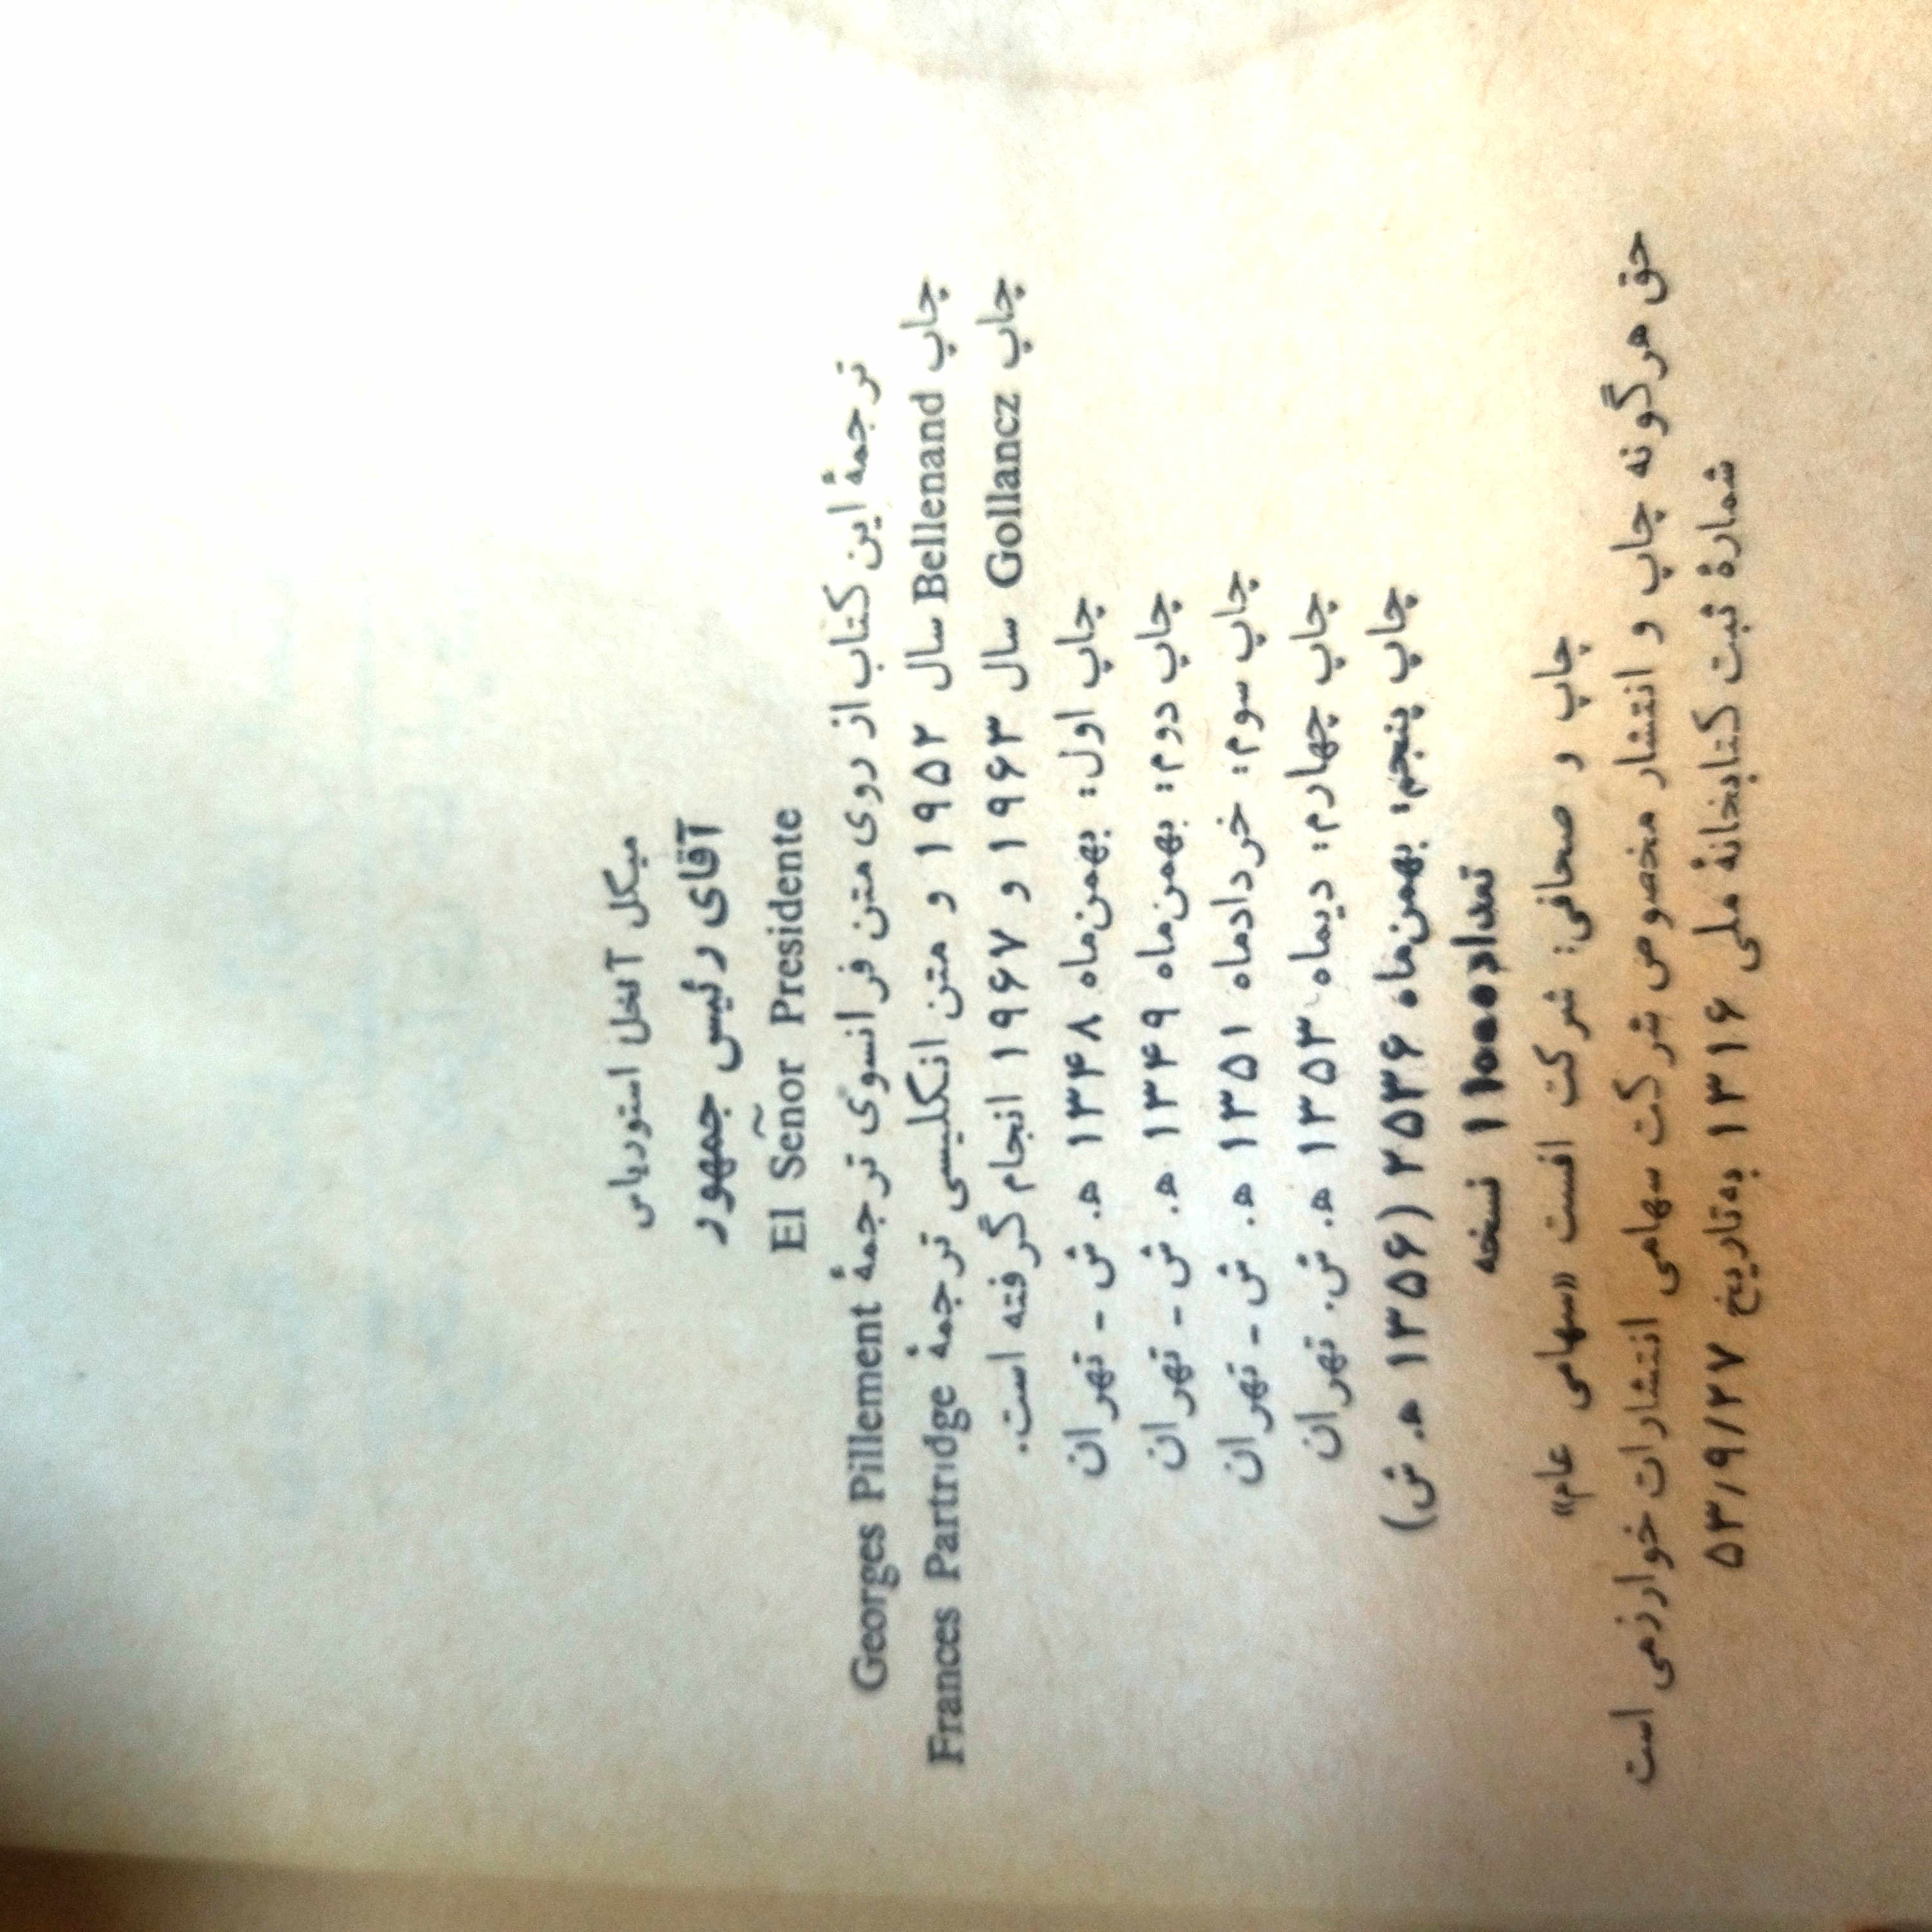 میگل آنخل استوریاس
آقای رئیس جمهور
El Señor Presidente
ترجمهٔ این کتاب از روی متن فرانسوی ترجمهٔ Georges Pillement
چاپ Bellenand سال ۱۹۵۲ و متن انگلیسی ترجمهٔ Frances Partridge
چاپ Gollancz سال ۱۹۶۳ و ۱۹۶۷ انجام گرفته است.
چاپ اول: بهمن‌ماه ۱۳۴۸ ه. ش - تهران
چاپ دوم: بهمن‌ماه ۱۳۴۹ ه. ش - تهران
چاپ سوم: خردادماه ۱۳۵۱ ه. ش - تهران
چاپ چهارم: دیماه ۱۳۵۳ ه. ش. تهران
چاپ پنجم: بهمن‌ماه ۲۵۳۶ (۱۳۵۶ ه. ش)
تعداد ۱۱۰۰۰ نسخه
چاپ و صحافی: شرکت افست «سهامی عام»
حق هرگونه چاپ و انتشار مخصوص شرکت سهامی انتشارات خوارزمی است
شمارهٔ ثبت کتابخانهٔ ملی ۱۳۱۶ به‌تاریخ ۵۳/۹/۲۷